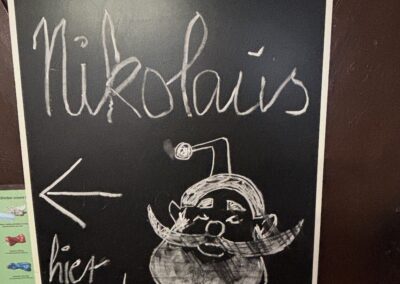 Nikolaus
hier